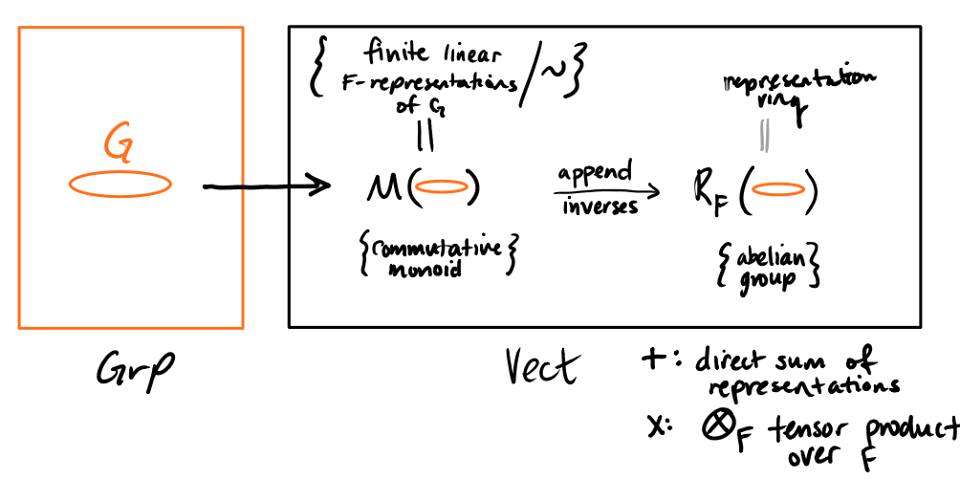 G
Grp
{ finite linear
F-representations
of G / ~ }
||
M( )
{commutative
monoid}
append
inverses
representation
ring
||
R_F ( )
{abelian
group}
Vect
+: direct sum of
representations
x: ⊗_F tensor product
over F